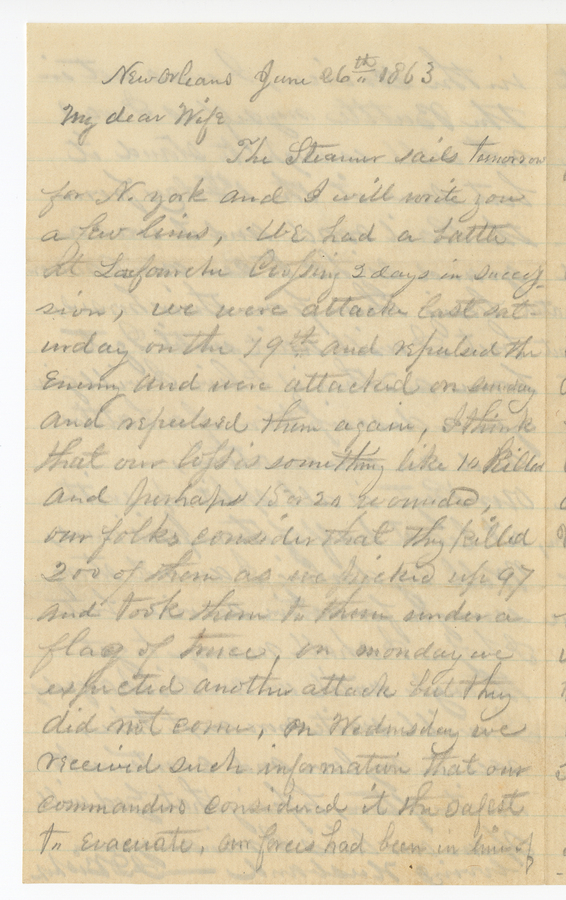 New Orleans June 26th 1863
My dear Wife
The Steamer sails tomorrow
for N. york and I will write you
a few lines, We had a battle
At Lafourche Crossing 2 days in succes-
sion, we were attacke last sat-
urday on the 19th and repulsed the
Enemy and were attacked on sunday
and repulsed them again, I think
that our loss is something like 10 killed
and perhaps 15 or 20 wounded,
our folks consider that they killed
200 of them as we picked up 97
and took them to them under a
flag of truce, on monday we
expected another attack but they
did not come, on Wednesday we
received such information that our
commanders considered it the safest
to evacuate, our forces had been in line of